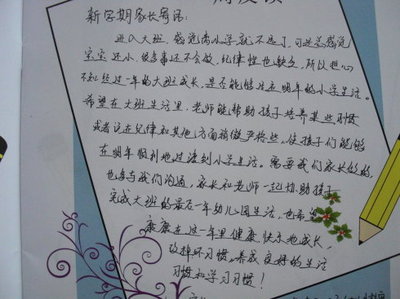 新学期家长寄语：
进入大班，感觉离小学就不远了，可总感觉
宝宝还小，很多事还不会做，纪律性也缺乏，所以担心
不知经过一年的大班成长，是否能够适应明年的小学生活。
希望在大班生活里，老师能帮助孩子培养某些习惯
或者说在纪律和其他方面稍微严格些，使孩子们能够
在明年顺利地过渡到小学生活。需要我们家长的
也多与我们沟通，家长和老师一起协助孩子
完成大班的最后一年幼儿园生活，也希望
康康在这一年里健康、快乐地成长，
改掉坏习惯，养成良好的生活
习惯和学习习惯！